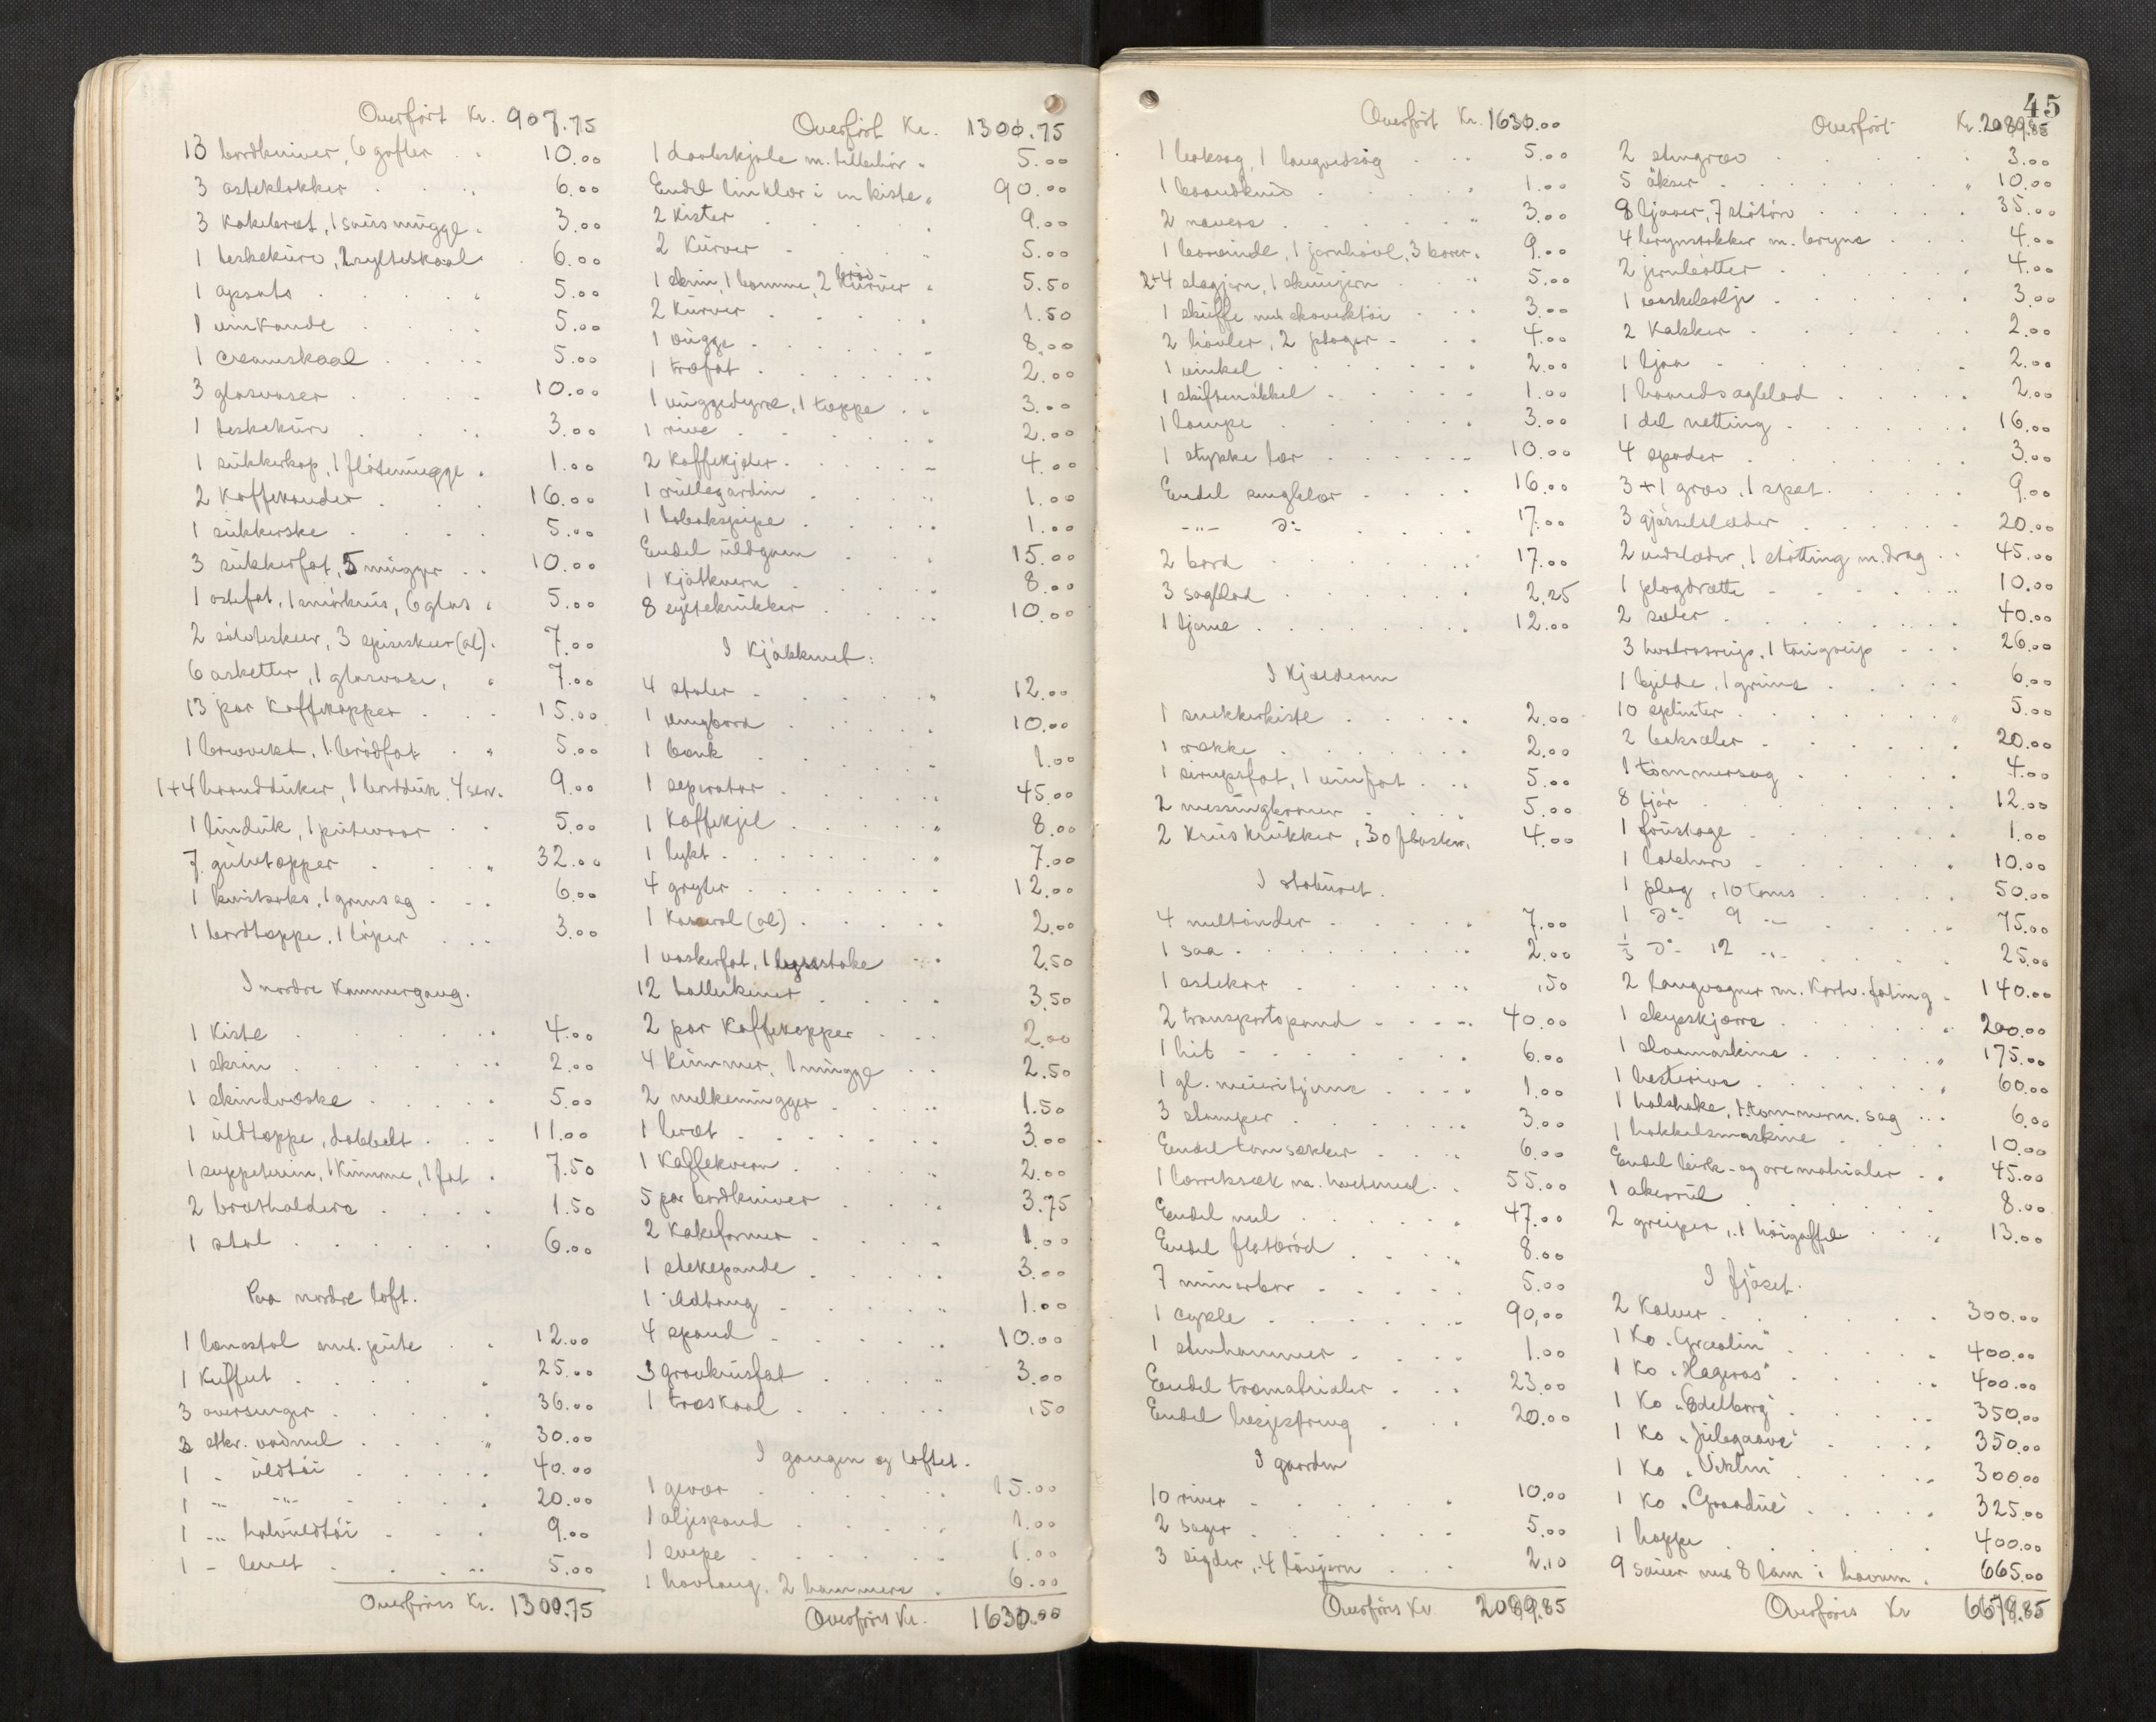 Overført Kr. 907.75
13 bordkniver, 6 gafler 10.00
3 osteklokker 6.00
3 kakebret, 1 saus mugge 3.00
1 beskekurv, 2 sylteskaal 6.00
1 opsats 5.00
1 vinkande 5.00
1 creamskaal 5.00
3 glasvaser 10.00
1 beskekurv 3.00
1 sukkerkop, 1 fløtemugge 1.00
2 kaffekander 16.00
1 sukkerske 5.00
3 sukkerfat, 5 mugger 10.00
1 ostefat, 1 smørkrus, 6 glas 5.00
2 sølvteskeer, 3 spiseskeer (al) 7.00
6 asketter, 1 glasvase, 7.00
13 par kaffekopper 15.00
1 brevvekt, 1 brødfat 5.00
1+4 haandduker, 1 bordduk, 4 serv. 9.00
1 linduk, 1 putevaar 5.00
7 gulvtepper 32.00
1 kvistsaks, 1 grensag 6.00
1 bordteppe, 1 løper 3.00
I nordre kammergang.
1 kiste 4.00
1 skrin 2.00
1 skindveske 5.00
1 uldteppe, dobbelt 11.00
1 suppeterin, 1 kumme, 1 fat 7.50
2 brætholdere 1.50
1 stol 6.00
Paa nordre loft.
1 lænestol med pute 12.00
1 kuffert 25.00
3 oversenger 36.00
3 stkr. vadmel 30.00
1 - uldtøi 40.00
1 -"- -"- 20.00
1 -"- halvuldtøi 9.00
1 - lerret 5.00
Overføres Kr. 1300.75
Overført Kr. 1300.75
1 daabskjole m. tilbehør 5.00
Endel linklær i en kiste 90.00
2 kister 9.00
2 kurver 5.00
1 skrin, 1 bomme, 2 brødkurver 5.50
2 kurver 1.50
1 vugge 8.00
1 træfat 2.00
1 vuggedyne, 1 teppe 3.00
1 rive 2.00
2 kaffekjeler 4.00
1 rullegardin 1.00
1 tobakspipe 1.00
Endel uldgarn 15.00
1 kjøtkvern 8.00
8 syltekrukker 10.00
I kjøkkenet:
4 stoler 12.00
1 slengbord 10.00
1 benk 1.00
1 separator 45.00
1 kaffekjel 8.00
1 lykt 7.00
4 gryter 12.00
1 kaserol (al) 2.00
1 vaskefat, 1 lysestake 2.50
12 tallerkener 3.50
2 par kaffekopper 2.00
4 kummer, 1 mugge 2.50
2 melkemugger 1.50
1 bret 3.00
1 kaffekvern 2.00
5 par bordkniver 3.75
2 kakeformer 1.00
1 stekepande 3.00
1 ildtang 1.00
4 spand 10.00
3 grovkrusfat 3.00
1 træskaal .50
I gangen og loftet.
1 gevær 15.00
1 oljespand 1.00
1 svepe 1.00
1 hovtang, 2 hammere 6.00
Overføres Kr. 1630.00
45
Overført Kr. 1630.00
1 baksag, 1 langvedsag 5.00
1 baandkniv 1.00
2 navere 3.00
1 borvinde, 1 jernhøvl, 3 borer 9.00
2+4 slagjern, 1 skrujern 5.00
1 skuffe med skoverktøi 3.00
2 høvler, 2 ploger 4.00
1 vinkel 2.00
1 skiftenøkkel 1.00
1 lampe 3.00
1 stykke lær 10.00
Endel sengklær 16.00
-"- do 17.00
2 bord 17.00
3 sagblad 2.25
1 tjerne 12.00
I kjælderen
1 snekkerkiste 2.00
1 rokke 2.00
1 sirupsfat, 1 vinfat 5.00
2 messingkraner 5.00
2 kruskrukker, 30 flasker 4.00
I staburet.
4 meltønder 7.00
1 saa 2.00
1 ostekar .50
2 transportspand 40.00
1 hit 6.00
1 gl. meieritjerne 1.00
3 stamper 3.00
Endel tomsækker 6.00
1 lerretssæk m. hvetemel 55.00
Endel mel 47.00
Endel flatbrød 8.00
7 minerbor 5.00
1 cykle 90.00
1 stenhammer 1.00
Endel træmaterialer 23.00
Endel hesjestreng 20.00
I gaarden
10 river 10.00
2 sager 5.00
3 sigder, 4 løvjern 2.10
Overføres Kr 2089.85
Overført Kr. 2089.85
2 stengrev 3.00
5 økser 10.00
8 ljaaer, 7 slåtorv 35.00
4 brynstokker m. bryne 4.00
2 jernbøtter 4.00
1 vaskebalje 3.00
2 hakker 2.00
1 ljaa 2.00
1 haandsagblad 2.00
1 del netting 16.00
4 spader 3.00
3+1 grev, 1 spet 9.00
3 gjødselslæder 20.00
2 vedslæder, 1 støtting m. drag 45.00
1 plogdrætte 10.00
2 seler 40.00
3 hvalrosreip, 1 taugreip 26.00
1 bjelde, 1 grime 6.00
10 splinter 5.00
2 bakseler 20.00
1 tømmersag 4.00
8 tjør 12.00
1 fruskage 1.00
1 labbharv 10.00
1 plog, 10 toms 50.00
1 do 9 -"- 75.00
1/3 do 12 -"- 25.00
2 langvogner m. kortv. foting 140.00
1 skyskjerre 200.00
1 slaamaskine 175.00
1 hesterive 60.00
1 halshake, 1 tømmerm. sag 6.00
1 hakkelsmaskine 10.00
Endel birk- og ore materialer 45.00
1 akerrul 8.00
2 greiper, 1 høigaffel 13.00
I fjøset.
2 kalver 300.00
1 ko "Grædlin" 400.00
1 ko "Hageros" 400.00
1 ko "Edelborg" 350.00
1 ko "Julegaava" 350.00
1 ko "Vektni" 300.00
1 ko "Graadue" 325.00
1 hoppe 400.00
9 sauer med 8 lam i haven 665.00
Overføres Kr 6679.85